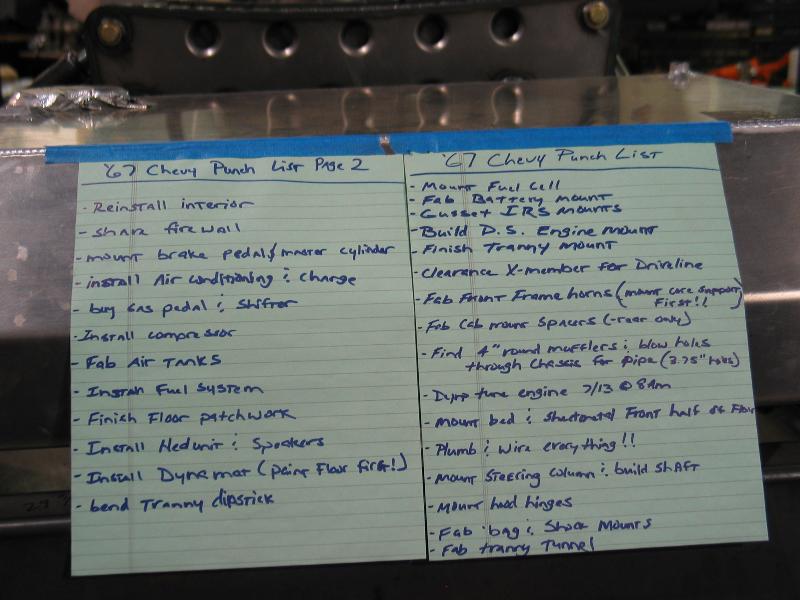 '67 Chevy Punch List Page 2
- Reinstall interior
- shave firewall
- mount brake pedal/master cylinder
- install Air conditioning & Charge
- buy Gas pedal & shifter
- Install compressor
- Fab Air Tanks
- Install Fuel System
- Finish Floor patchwork
- Install Hedunit & Speakers
- Install Dynamat (paint Floor first!)
- bend Tranny dipstick
'67 Chevy Punch List
- Mount Fuel Cell
- Fab Battery mount
- Gusset IRS mounts
- Build D.S. Engine mount
- Finish Tranny mount
- Clearance X-member for Driveline
- Fab Front Frame horns (mount core support
First!!)
- Fab Cab mount Spacers (-rear only)
- Find 4" round mufflers & blow holes
through Chassis for pipe (3.75" holes)
- Dyno tune engine 7/13 @ 8am
- Mount bed & Sheetmetal Front half of Floor
- Plumb & Wire everything!!
- Mount Steering column & build Shaft
- Mount hood hinges
- Fab 'bag & Shock Mounts
- Fab tranny Tunnel